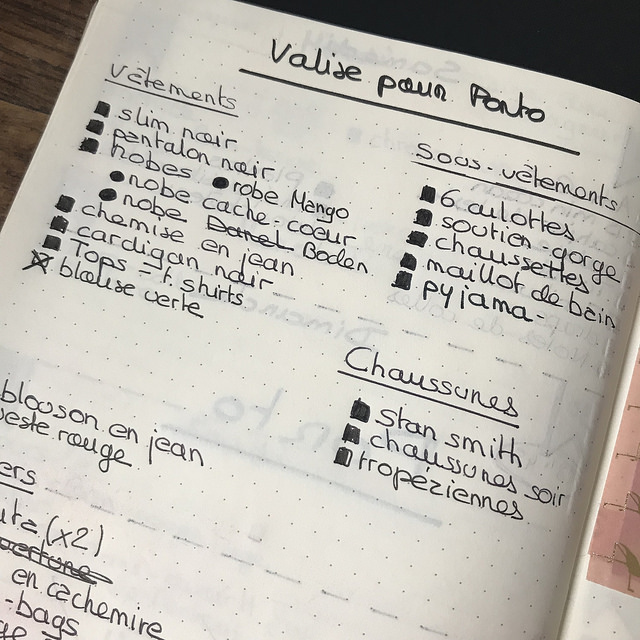 Valise pour Porto
Vêtements
slim noir
pantalon noir
Robes
robe cache-coeur
robe Mango
robe Boden
chemise en jean
cardigan noir
Tops - t.shirts
blouse verte
Sous-vêtements
6 culottes
soutien-gorge
chaussettes
maillot de bain
pyjama
Chaussures
stan smith
chaussures soir
tropéziennes
blouson en jean
veste rouge
en cachemire
-bags